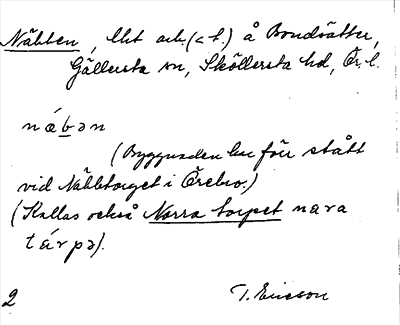 Näbben, lht och (< t.) å Bondsätter,
Gällersta sn, Sköllersta hd, Ör. l.
náb̲ən
(Byggnaden har förr stått
vid Näbbtorget i Örebro.)
(Kallas också Norra torpet nara
tárpə).
2 T. Ericson